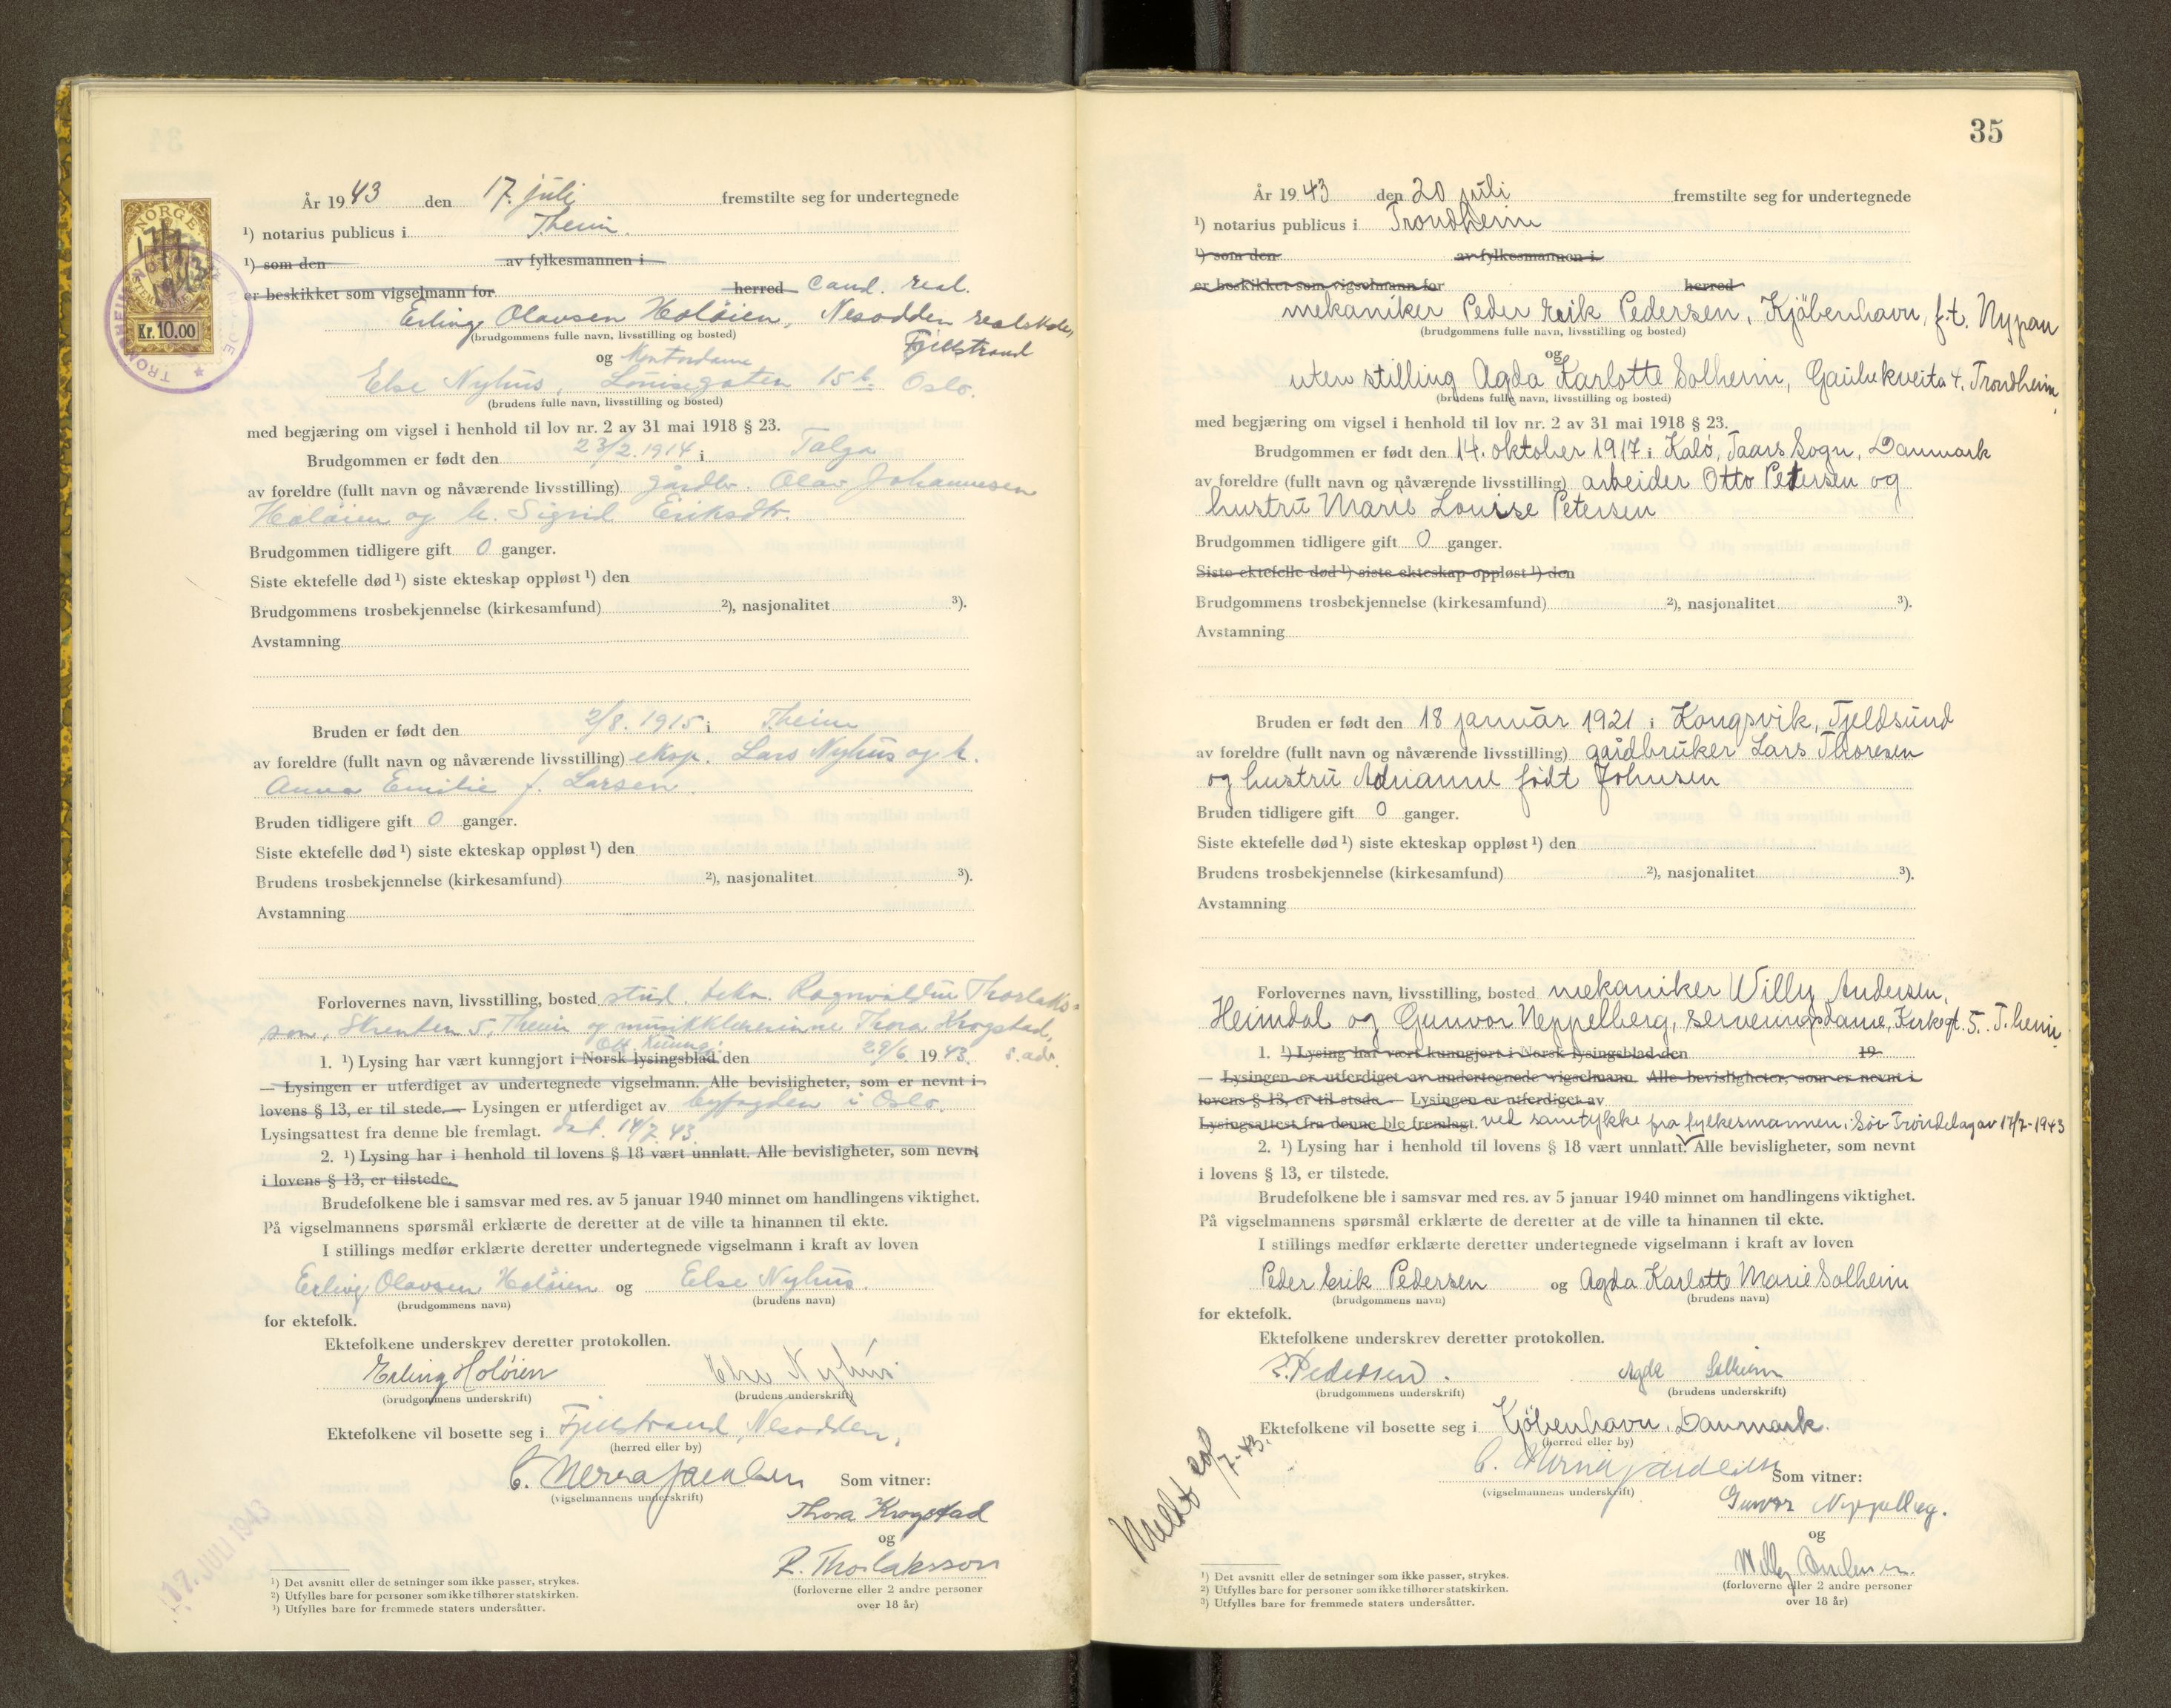 NORGE
17/7
1943
Kr. 10.00
År 1943 den 17. juli fremstilte seg for undertegnede
¹) notarius publicus i Theim.
¹) som den av fylkesmannen i
er beskikket som vigselmann for herred cand. real.
Erling Olavsen Holöien, Nesodden realskole,
(brudgommens fulle navn, livsstilling og bosted) Fjellstrand
og Kontordame
Else Nyhus, Louisegaten 15 b. Oslo.
(brudens fulle navn, livsstilling og bosted)
med begjæring om vigsel i henhold til lov nr. 2 av 31 mai 1918 § 23.
Brudgommen er født den 23/2. 1914 i Tolga
av foreldre (fullt navn og nåværende livsstilling) gårdbr. Olav Johannesen
Holöien og h. Sigrid Eriksdtr.
Brudgommen tidligere gift 0 ganger.
Siste ektefelle død ¹) siste ekteskap oppløst ¹) den
Brudgommens trosbekjennelse (kirkesamfund) ²), nasjonalitet ³).
Avstamning
Bruden er født den 2/8. 1915 i Theim
av foreldre (fullt navn og nåværende livsstilling) eksp. Lars Nyhus og h.
Anna Emilie f. Larsen.
Bruden tidligere gift 0 ganger.
Siste ektefelle død ¹) siste ekteskap oppløst ¹) den
Brudens trosbekjennelse (kirkesamfund) ²), nasjonalitet ³).
Avstamning
Forlovernes navn, livsstilling, bosted stud. tekn. Ragnvaldur Thorlaks-
son, Skrenten 5, Theim og musikklærerinne Thora Krogstad,
Off. Kunng.
1. ¹) Lysing har vært kunngjort i Norsk lysingsblad den 29/6 1943. s. adr.
— Lysingen er utferdiget av undertegnede vigselmann. Alle bevisligheter, som er nevnt i
lovens § 13, er til stede. — Lysingen er utferdiget av byfogden i Oslo.
Lysingsattest fra denne ble fremlagt. dat. 14/7. 43.
2. ¹) Lysing har i henhold til lovens § 18 vært unnlatt. Alle bevisligheter, som nevnt
i lovens § 13, er tilstede.
Brudefolkene ble i samsvar med res. av 5 januar 1940 minnet om handlingens viktighet.
På vigselmannens spørsmål erklærte de deretter at de ville ta hinannen til ekte.
I stillings medfør erklærte deretter undertegnede vigselmann i kraft av loven
Erling Olavsen Holöien og Else Nyhus.
(brudgommens navn) (brudens navn)
for ektefolk.
Ektefolkene underskrev deretter protokollen.
Erling Holöien Else Nyhus
(brudgommens underskrift) (brudens underskrift)
Ektefolkene vil bosette seg i Fjellstrand, Nesodden.
(herred eller by)
Som vitner:
(vigselmannens underskrift)
Thora Krogstad
og
R. Thorlaksson
(forloverne eller 2 andre personer
over 18 år)
17. JULI 1943
¹) Det avsnitt eller de setninger som ikke passer, strykes.
²) Utfylles bare for personer som ikke tilhører statskirken.
³) Utfylles bare for fremmede staters undersåtter.
35
År 1943 den 20 juli fremstilte seg for undertegnede
¹) notarius publicus i Trondheim
¹) som den av fylkesmannen i
er beskikket som vigselmann for herred
mekaniker Peder Erik Pedersen, Kjöbenhavn, f.t. Nypan
(brudgommens fulle navn, livsstilling og bosted)
og
uten stilling Agda Karlotte Solheim, Gaubekveita 4, Trondheim,
(brudens fulle navn, livsstilling og bosted)
med begjæring om vigsel i henhold til lov nr. 2 av 31 mai 1918 § 23.
Brudgommen er født den 14. oktober 1917 i Kalö, Taars Sogn, Danmark
av foreldre (fullt navn og nåværende livsstilling) arbeider Otto Petersen og
hustru Marie Louise Petersen
Brudgommen tidligere gift 0 ganger.
Siste ektefelle død ¹) siste ekteskap oppløst ¹) den
Brudgommens trosbekjennelse (kirkesamfund) ²), nasjonalitet ³).
Avstamning
Bruden er født den 18 januar 1921 i Kongsvik, Tjeldsund
av foreldre (fullt navn og nåværende livsstilling) gaidbruker Lars Thoresen
og hustru Adrianne födt Johnsen
Bruden tidligere gift 0 ganger.
Siste ektefelle død ¹) siste ekteskap oppløst ¹) den
Brudens trosbekjennelse (kirkesamfund) ²), nasjonalitet ³).
Avstamning
Forlovernes navn, livsstilling, bosted mekaniker Willy Andersen,
Heimdal og Gunvor Neppelberg, serveringsdame, Kirkegt. 5. T.heim.
1. ¹) Lysing har vært kunngjort i Norsk lysingsblad den 19
— Lysingen er utferdiget av undertegnede vigselmann. Alle bevisligheter, som er nevnt i
lovens § 13, er til stede. — Lysingen er utferdiget av
Lysingsattest fra denne ble fremlagt. ved samtykke fra fylkesmannen i Sör Tröndelag av 17/7-1943
2. ¹) Lysing har i henhold til lovens § 18 vært unnlatt. Alle bevisligheter, som nevnt
i lovens § 13, er tilstede.
Brudefolkene ble i samsvar med res. av 5 januar 1940 minnet om handlingens viktighet.
På vigselmannens spørsmål erklærte de deretter at de ville ta hinannen til ekte.
I stillings medfør erklærte deretter undertegnede vigselmann i kraft av loven
Peder Erik Pedersen og Agda Karlotte Marie Solheim
(brudgommens navn) (brudens navn)
for ektefolk.
Ektefolkene underskrev deretter protokollen.
E. Pedersen. Agda Solheim
(brudgommens underskrift) (brudens underskrift)
Ektefolkene vil bosette seg i Kjöbenhavn, Danmark.
(herred eller by)
Som vitner:
(vigselmannens underskrift)
Gunvor Neppelberg.
og
Willy Andersen.
(forloverne eller 2 andre personer
over 18 år)
Meldt 20/7-43.
¹) Det avsnitt eller de setninger som ikke passer, strykes.
²) Utfylles bare for personer som ikke tilhører statskirken.
³) Utfylles bare for fremmede staters undersåtter.